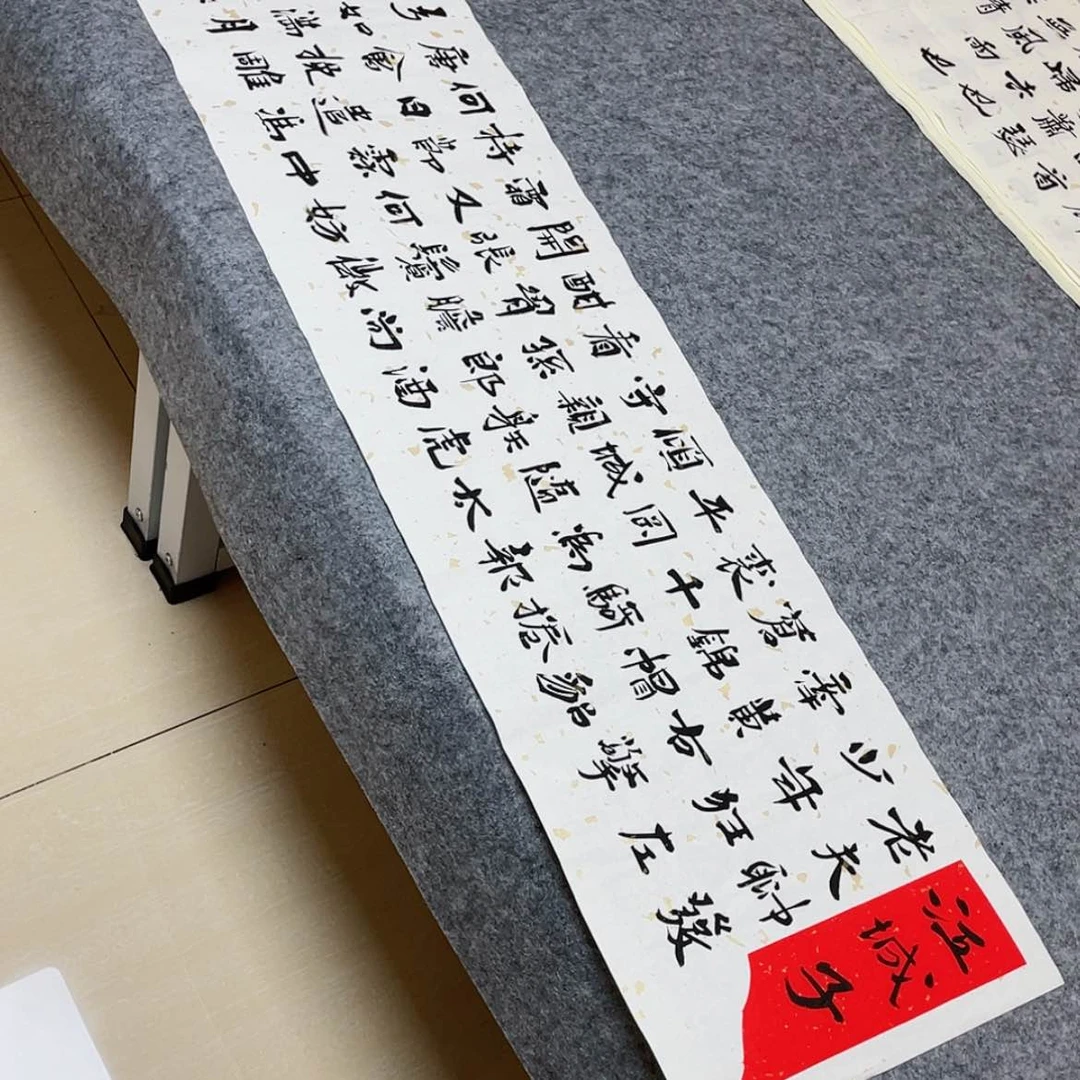 江城子
老夫聊發
少年狂左
牽黃右擎
蒼錦帽貂
裘千騎捲
平岡為報
傾城隨太
守親射虎
看孫郎酒
酣胷膽尚
開張鬢微
霜又何妨
持節雲中
何日遣馮
唐會挽雕
弓如滿月
首
蕭瑟
歸去也
無風雨也
晴